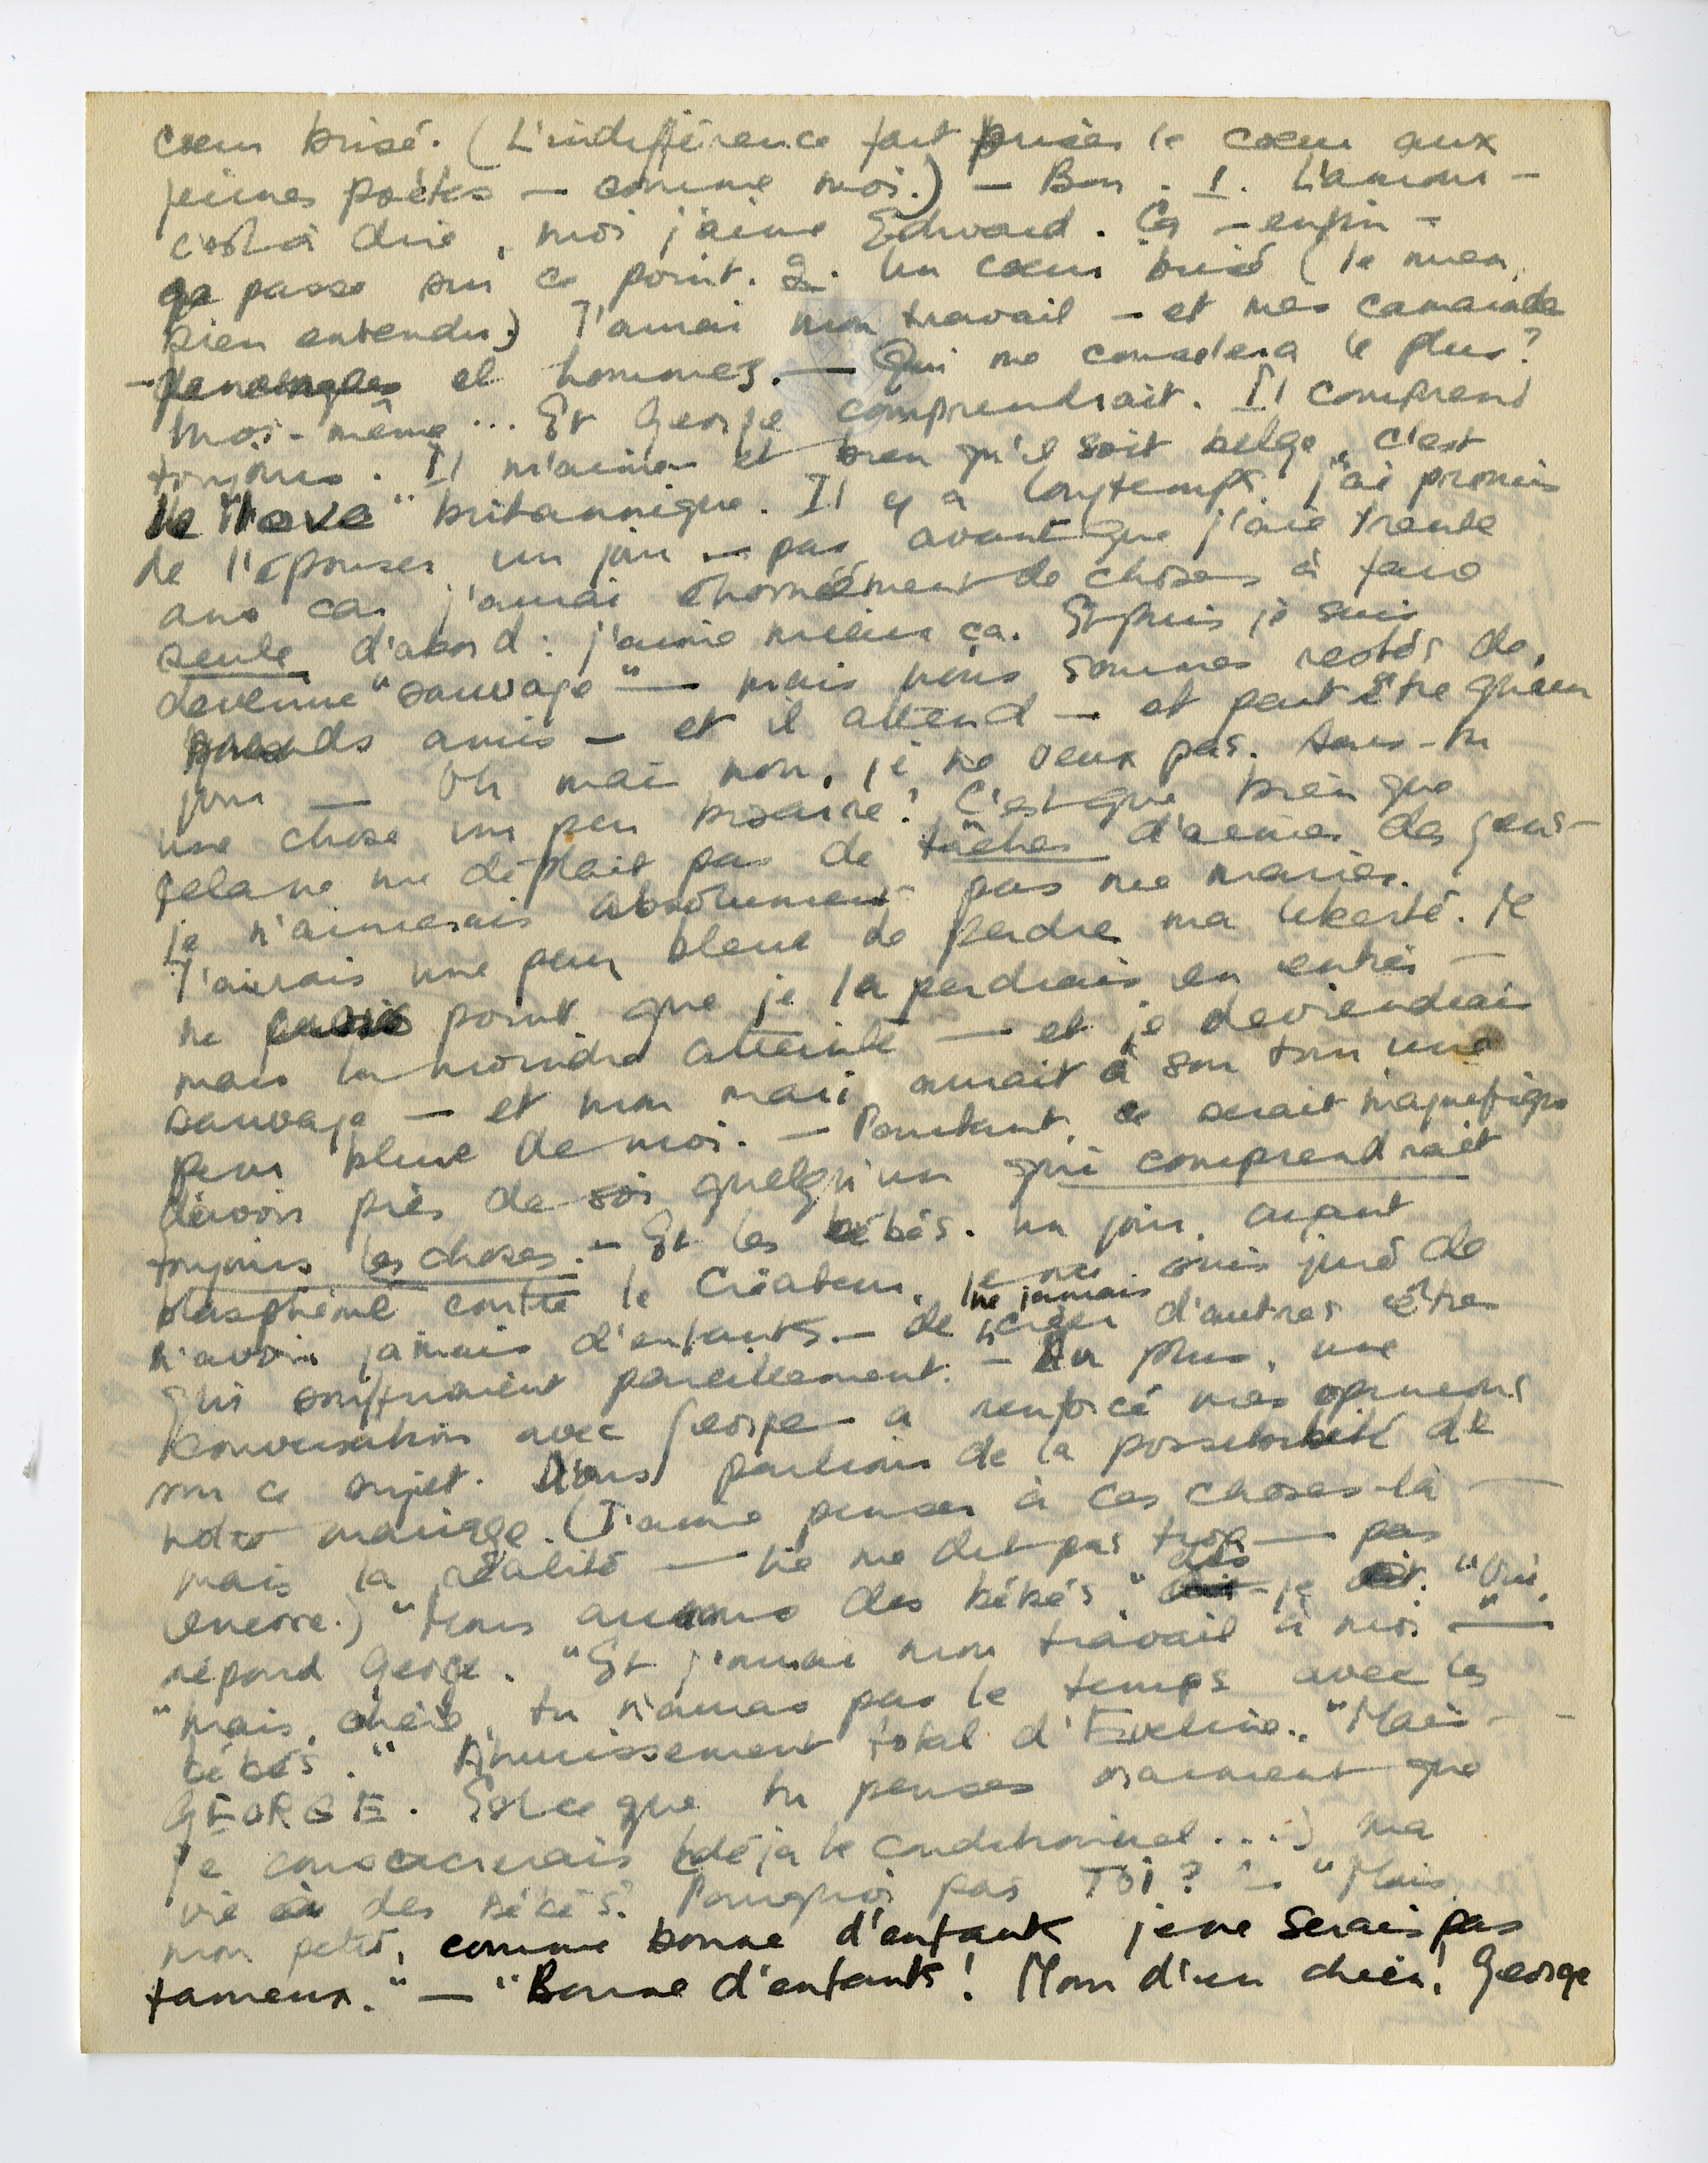 cœur brisé. (L'indifférence fait briser le cœur aux
jeunes poètes — comme moi.) — Bon. 1. L'amour —
c'est à dire, moi j'aime Edward. Ça — enfin —
ça passe sur ce point. 2. Un cœur brisé (le mien,
bien entendu.) J'aurai mon travail — et mes camarades
— et hommes. — Qui me consolera le plus?
Moi-même... Et George comprendrait. Il comprend
toujours. Il m'aime et bien qu'il soit belge, c'est
le "love" britannique. Il y a longtemps, j'ai promis
de l'épouser un jour — pas avant que j'aie trente
ans car j'aurai énormément de choses à faire
seule d'abord: j'aime mieux ça. Et puis je suis
devenue "sauvage" — mais nous sommes restés de
grands amis — et il attend — et peut être qu'un
jour — Oh mais non, je ne veux pas. Sais-tu
une chose un peu bizarre? C'est que bien que
cela ne me déplait pas de tâcher d'aimer des gens —
je n'aimerais absolument pas me marier.
J'aurais une peur bleue de perdre ma liberté. Je
ne point que je la perdrais en entier —
mais la moindre atteinte — et je deviendrais
sauvage — et mon mari aurait à son tour une
peur bleue de moi. — Pourtant, ce serait magnifique
d'avoir près de soi quelqu'un qui comprendrait
toujours les choses. — Et les bébés. Un jour, ayant
blasphémé contre le Créateur, je me suis juré de
n'avoir jamais d'enfants — de ne jamais créer d'autres êtres
qui souffriraient pareillement. — En plus, une
conversation avec George a renforcé mes opinions
sur ce sujet. Nous parlions de la possibilité de
notre mariage. (J'aime penser à ces choses-là —
mais la réalité — ne me dit pas trop — pas
encore.) "Nous aurons des bébés" dis-je. "Oui,
répond George. "Et j'aurai mon travail à moi —"
"Mais, chérie, tu n'auras pas le temps avec les
bébés." Ahurissement total d'Eveline. "Mais —
GEORGE. Est-ce que tu penses vraiment que
je consacrerais (déjà le conditionnel...) ma
vie à des bébés? Pourquoi pas TOI?" — "Mais
mon petit, comme bonne d'enfants je ne serais pas
fameux." — "Bonne d'enfants! Nom d'un chien! George